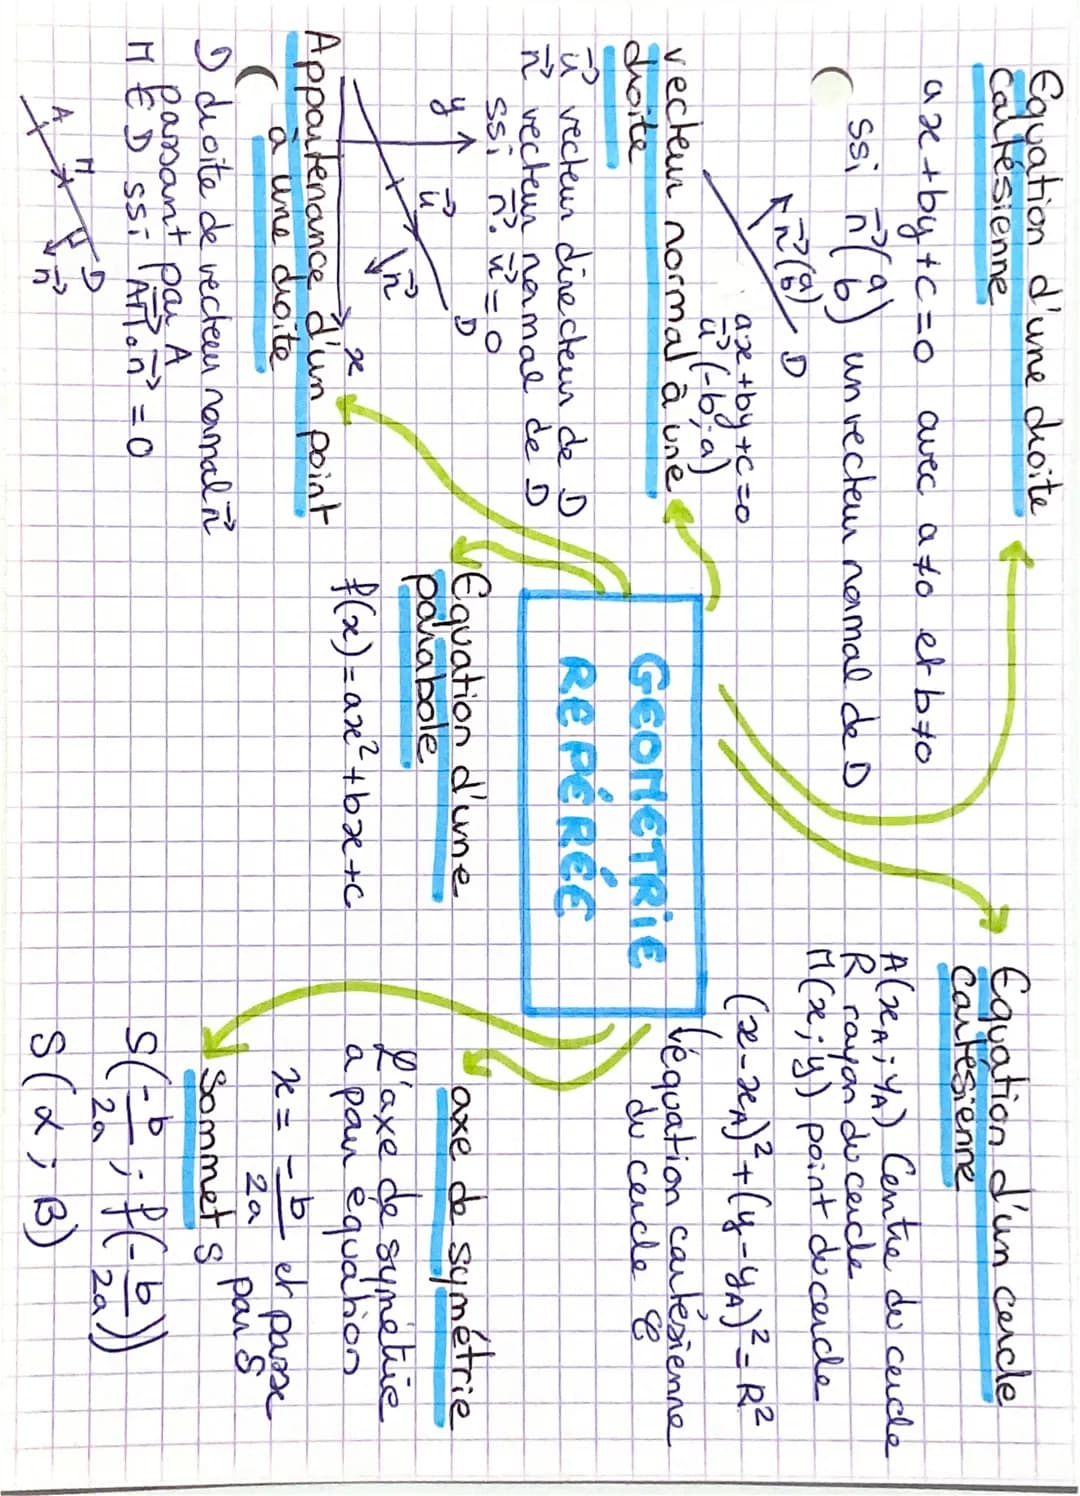 GEOMETRIE
REPÉRÉE
Equation d'une droite
cartésienne
ax+by+c=0 avec a≠0 et b≠0
ssi n⃗(a b) un vecteur normal de D
n⃗(a b)
D
ax+by+c=0
u⃗(-b;a)
vecteur normal à une
droite
u⃗ vecteur directeur de D
n⃗ vecteur normal de D
ssi n⃗.u⃗=0
y
u⃗
n⃗
D
x
Appartenance d'un point
à une droite
D droite de vecteur normal n⃗
passant par A
M ∈ D ssi AM⃗.n⃗=0
A
M
D
n⃗
Equation d'une
parabole
f(x)=ax²+bx+c
Equation d'un cercle
cartésienne
A(xA;yA) Centre du cercle
R rayon du cercle
M(x;y) point du cercle
(x-xA)²+(y-yA)²=R²
équation cartésienne
du cercle C
axe de symétrie
L'axe de symétrie
a pour équation
x=-b/2a et passe
par S
Sommet S
S(-b/2a; f(-b/2a))
S(α;β)